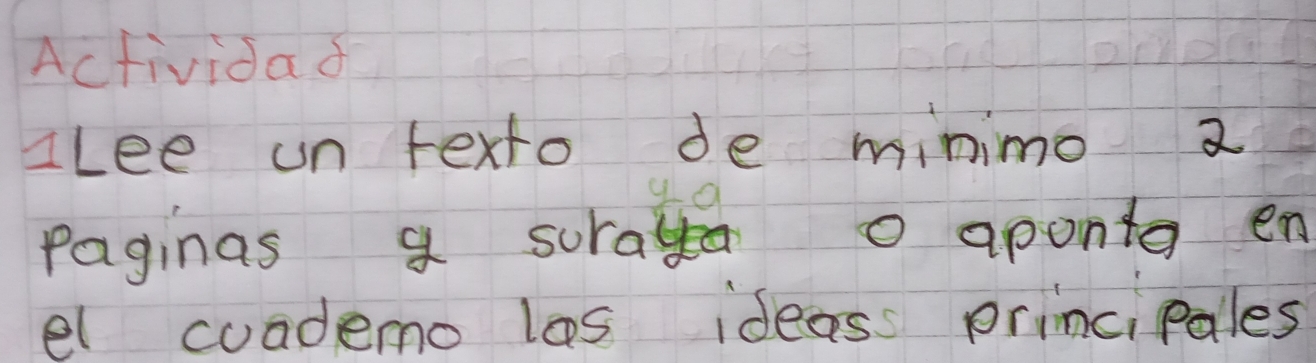 Actividad
1 Lee un texto de minimo 2
ya
Paginas y suraya o apunta en
el cuaderno las ideas principales